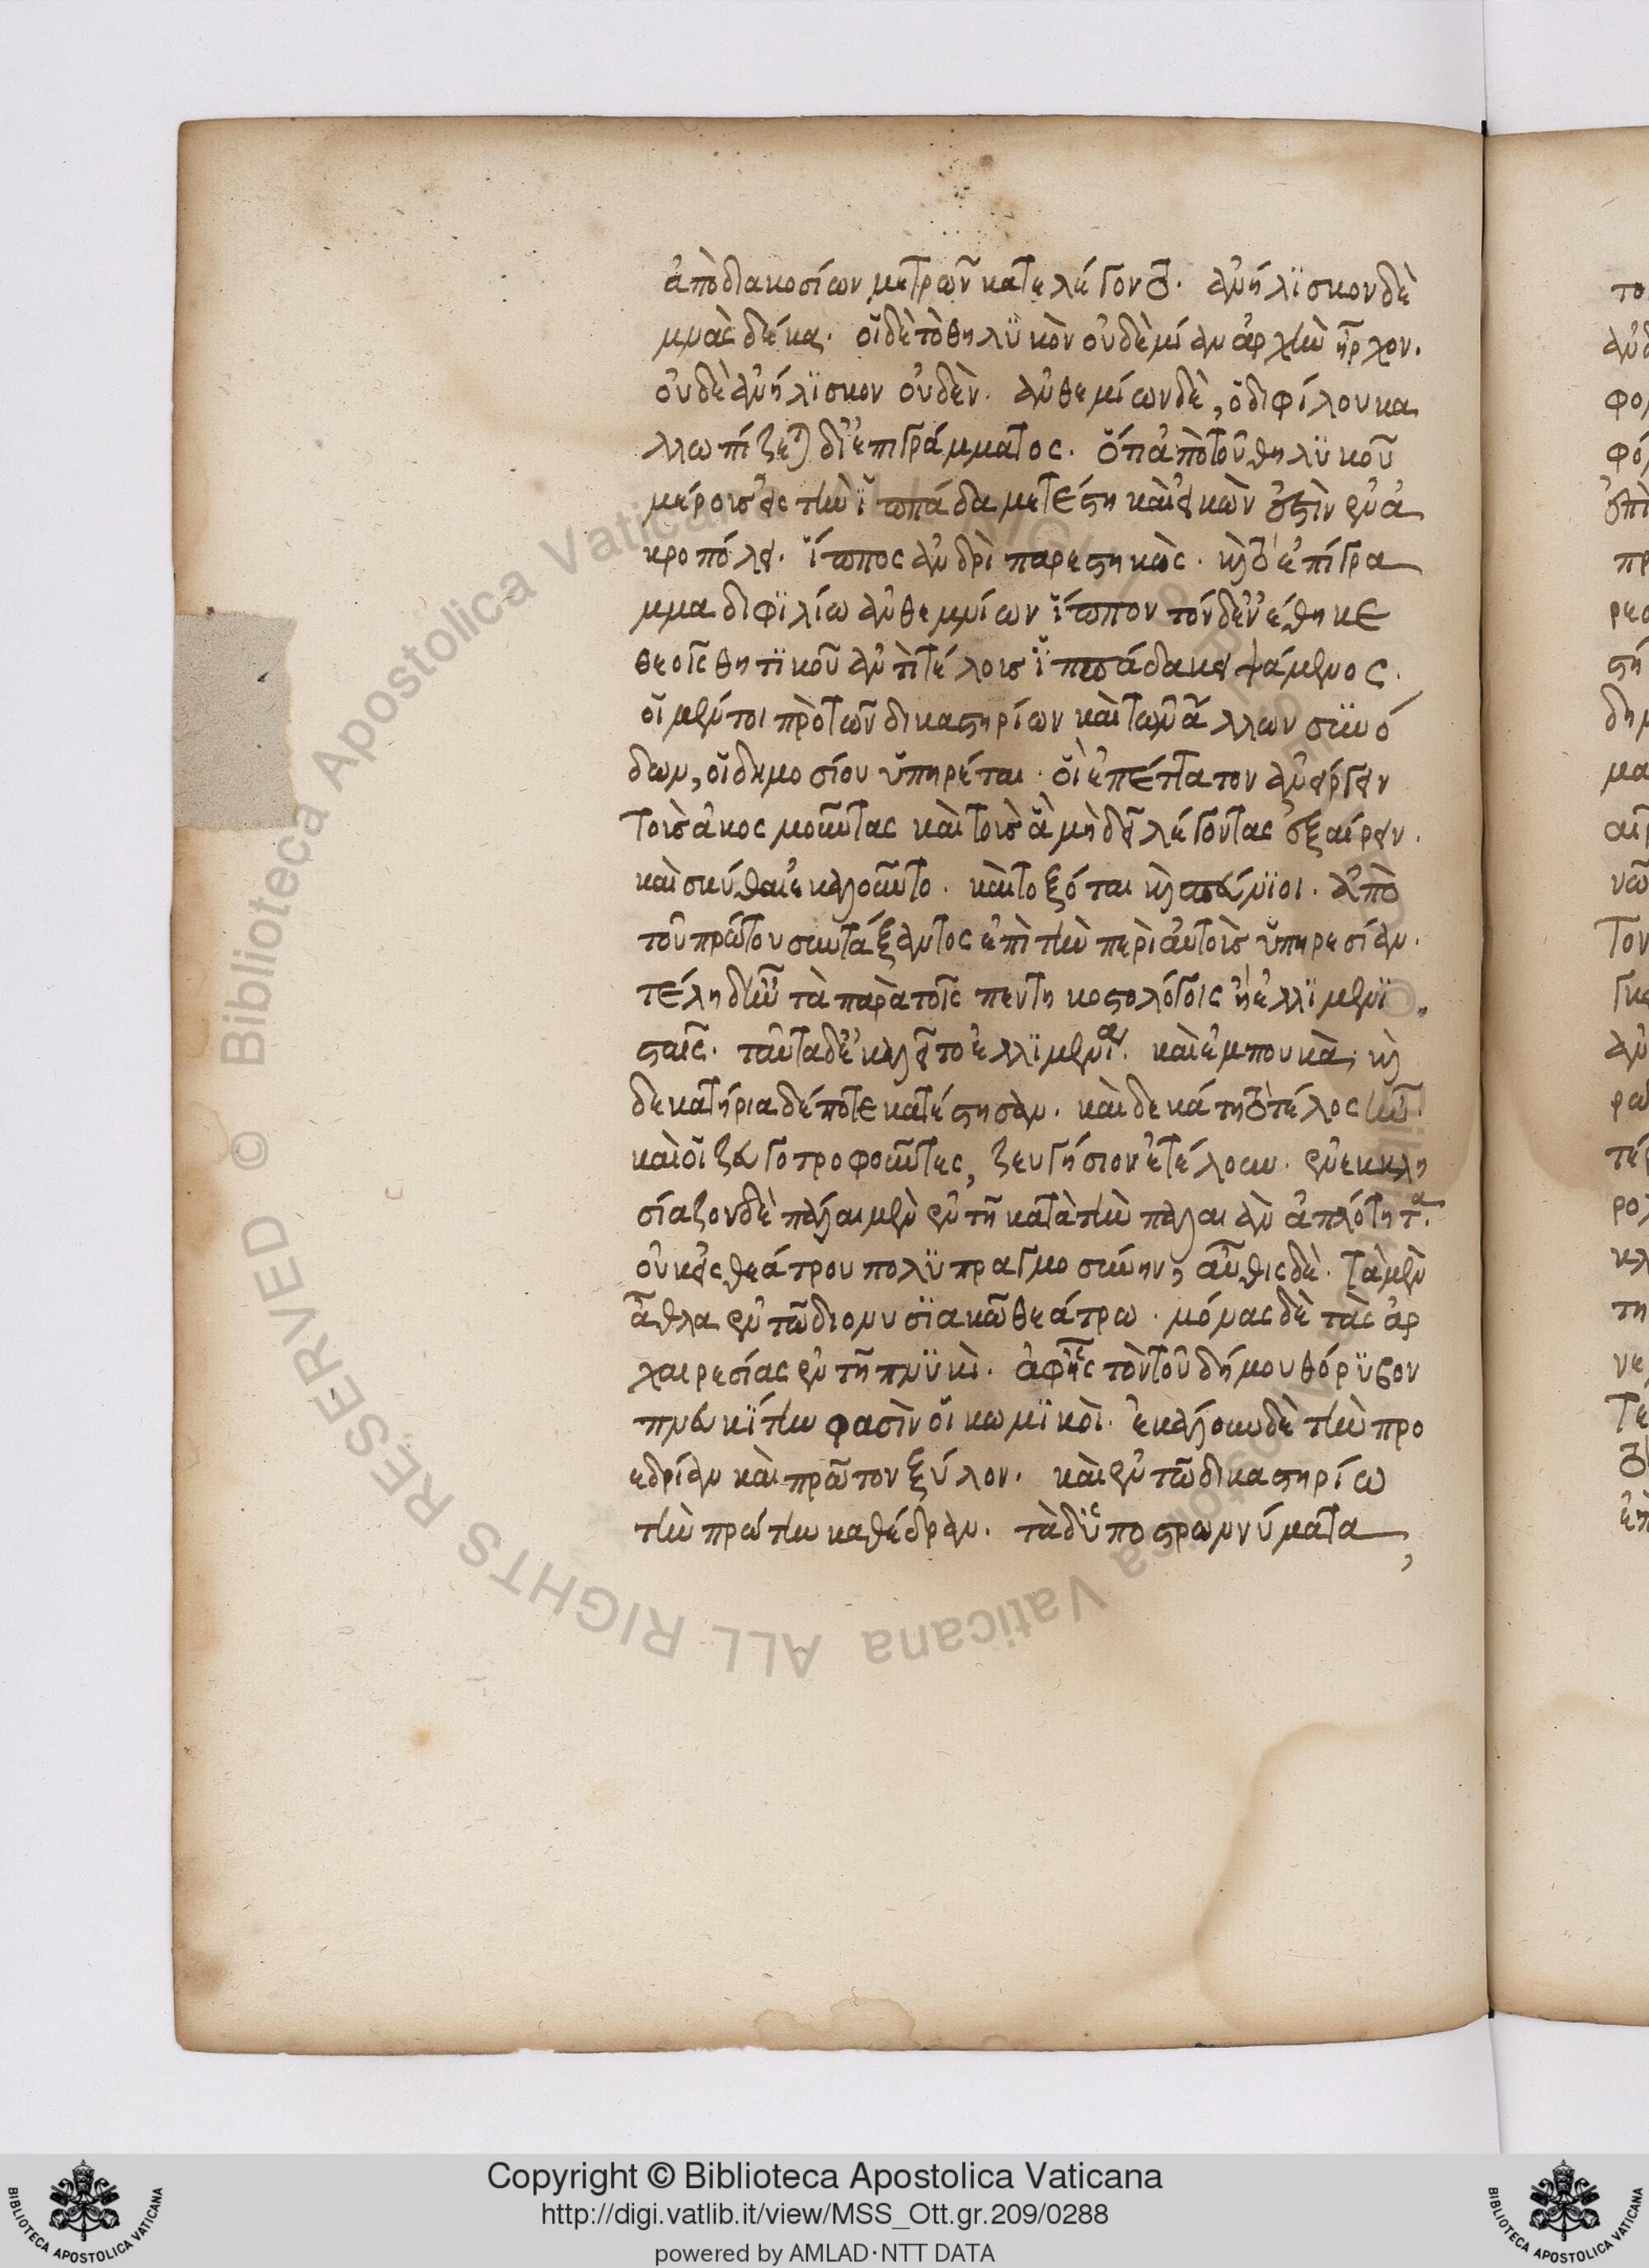 ἀπὸ διακοσίων μετρῶν κατελέγοντο. ἀνήλϊσκον δὲ
μνὰς δέκα. οἱ δὲ τὸ θηλϋκὸν οὐδὲ μίαν ἀρχὴν ἦρχον.
οὐδὲ ἀνήλϊσκον οὐδὲν. ἀνθεμίων δὲ, ὁ διφίλου κα
λλωπίζεται δι' ἐπιγράμματος. ὅτι ἀπὸ τοῦ θηλϋκοῦ
μέρους εἰς τὴν ἱππάδα μετέστη καὶ εἰκὼν ἐστὶν ἐν ἀ
κροπόλει. ἵππος ἀνδρὶ παρεστηκὼς. καὶ τὸ ἐπίγρα
μμα διφϊλίω ἀνθεμμίων ἵππον τόνδ' ἀνέθηκε
θεοῖς θητϊκοῦ ἀντὶ τέλους ἱππάδ' ἀμειψάμενος.
οἱ μέντοι πρὸ τῶν δικαστηρίων καὶ τῶν ἄλλων συνό
δων, οἱ δημοσίου ὑπηρέται. οἳ ἐπέτατον ἀνείργειν
τοὺς ἀκοσμοῦντας καὶ τοὺς ἃ μὴ δεῖ λέγοντας ἐξαίρειν.
καὶ σκύθαι ἐκαλοῦντο. καὶ τοξόται καὶ πευσίνϊοι. ἀπὸ
τοῦ πρῶτου συντάξαντος ἐπὶ τὴν περὶ αὐτοὺς ὑπηρεσίαν.
τέλη δ' ἦν τὰ παρὰ τοῖς πεντηκοστολόγοις ἢ ἐλλϊμενϊ
σταῖς. ταῦτα δ' ἐκαλεῖτο ἐλλϊμένια. καὶ ἐμπουκὰ, καὶ
δεκατήρια δέ ποτε κατέστησαν. καὶ δεκάτη τὸ τέλος ἦν.
καὶ οἱ ζευγοτροφοῦντες, ζευγήσιον ἐτέλουν. ἐνεκκλη
σίαζον δὲ πάλαι μὲν ἐν τῆ κατὰ τὴν πάλαιαν ἀπλότητα.
οὐκ εἰς θεάτρου πολϋπραγμοσύνην, αὖθις δὲ. τὰ μὲν
ἄθλα ἐν τῶ διονυσϊακῶ θεάτρω. μόνας δὲ τὰς ἀρ
χαιρεσίας ἐν τῆ πνϋκὶ. ἀφ' ἧς τὸν τοῦ δήμου θόρϋβον
πνυκΐτην φασὶν οἱ κωμϊκοὶ. ἐκάλουν δὲ τὴν προ
εδρίαν καὶ πρῶτον ξύλον. καὶ ἐν τῶ δικαστηρίω
τὴν πρώτην καθέδραν. τὰ δ' ὑποστρωμνύματα,